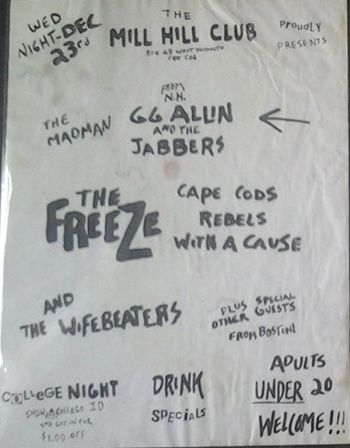 WED
NIGHT-DEC
23rd
THE
MILL HILL CLUB
Rte 28 WEST YARMOUTH
CAPE COD
PROUDLY
PRESENTS
FROM
N.H.
THE
MADMAN
GG ALLIN
AND THE
JABBERS
THE
FREEZE
CAPE CODS
REBELS
WITH A CAUSE
AND
THE WIFEBEATERS
PLUS SPECIAL
OTHER GUESTS
FROM BOSTON
COLLEGE NIGHT
SHOW A COLLEGE ID
AND GET IN FOR
$1.00 OFF
DRINK
SPECIALS
ADULTS
UNDER 20
WELCOME!!!